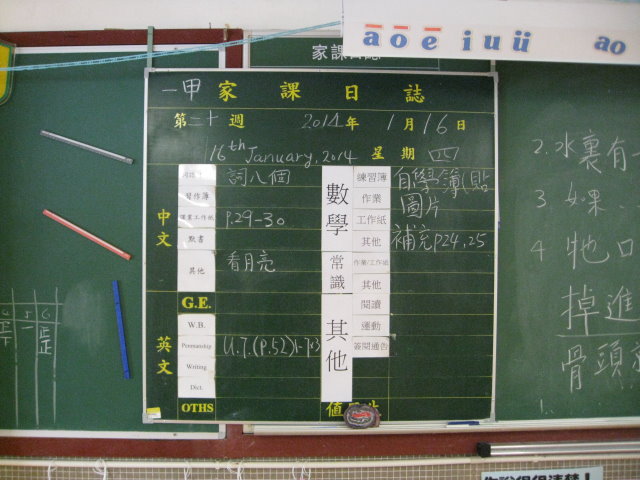 ā ō ē i u ü ao
家課日誌
一甲家課日誌
第二十週 2014年 1月16日
16th January, 2014 星期四
中文
詞八個
習作簿
p.29-30
默書
其他
看月亮
G.E.
英文
W.B.
Penmanship
Writing
Dict.
OTHS
數學
練習簿
自學簿(貼
作業
圖片
工作紙
其他
補充p24,25
常識
作業/工作紙
其他
其他
閱讀
運動
簽閱通告
2.水裏有一
3 如果
4 牠口
掉進
骨頭